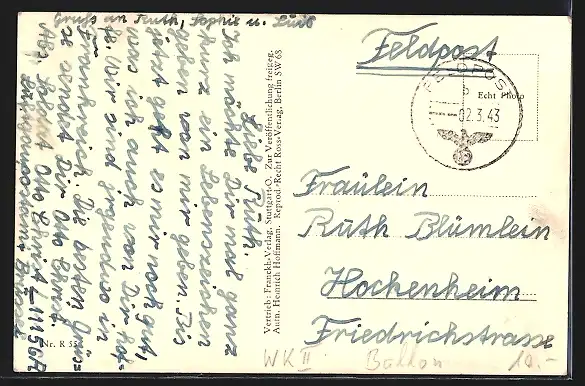 Gruss an Ruth, Sophie u. Luis
Liebe Ruth!
Ich möchte Dir mal ganz
kurz ein Lebenszeichen
geben von mir geben. Bis
jetzt geht es mir noch gut,
was ich auch von Dir hof-
fe. Wir sind grade so in
Frankreich. Die besten Grüs-
se sendet Dir Otto Ehret.
Abs. Soldat Otto Ehret
Vertrieb: Franckh-Verlag, Stuttgart-O. Zur Veröffentlichung freigeg.
Aufn. Heinrich Hoffmann. Reprod.-Recht Ross-Verlag, Berlin SW 68
Nr. R 55
Feldpost
FELDPOST
b
02.3.43
Echt Photo
Fräulein
Ruth Blümlein
Hockenheim
Friedrichstrasse
WK II Balkon 10.-